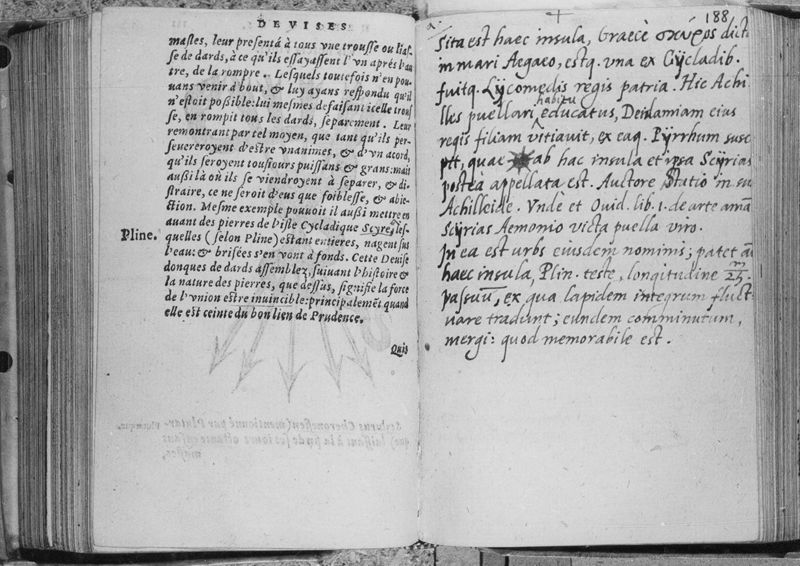 DEVISES
masles, leur presentá à tous vne trousse ou lias-
se de dards, à ce qu'ils essayassent l'vn aprés l'au
tre, de la rompre. Lesquels toutefois n'en pou-
uans venir à bout, & luy ayans respondu qu'il
n'estoit poßible: lui mesmes defaisant icelle trous
se, en rompit tous les dards, separement. Leur
remontrant par tel moyen, que tant qu'ils per-
seuereroyent d'estre vnanimes, & d'vn acord,
qu'ils seroyent tousiours puissans & grans: mais
außi là où ils se viendroyent à separer, & di-
straire, ce ne seroit d'eus que foiblesse, & abie-
ction. Mesme exemple pouuoit il außi mettre en
auant des pierres de l'isle Cycladique Scyre, les-
Pline. quelles (selon Pline) estant entieres, nagent sus
l'eau: & brisées s'en vont à fonds. Cette Deuise
donques de dards assemblez, suiuant l'histoire &
la nature des pierres, que dessus, signifie la force
de l'vnion estre inuincible: principalemēt quand
elle est ceinte du bon lien de Prudence.
Quis
188
a. Sita est haec insula, Graecè σκύρος dict
in mari Aegaeo, estq. vna ex Cÿcladib.
fuitq. Lÿcomedis regis patria. Hic Achi
lles puellari habitu educatus, Deidamiam eius
regis filiam vitiauit, ex eaq. Pÿrrhum susc
pit, quae ab hac insula et ipsa Scÿrias
posteà appellata est. Auctore Statio in su
Achilleide. Vnde et Ouid. lib. 1. de arte amā
Scÿrias Aemonio victa puella viro.
In ea est urbs eiusdem nominis; patet aū
haec insula, Plin. teste, longitudine m/25.
passuū, ex qua lapidem integrum fluct
uare tradunt; eundem comminutum,
mergi: quod memorabile est.